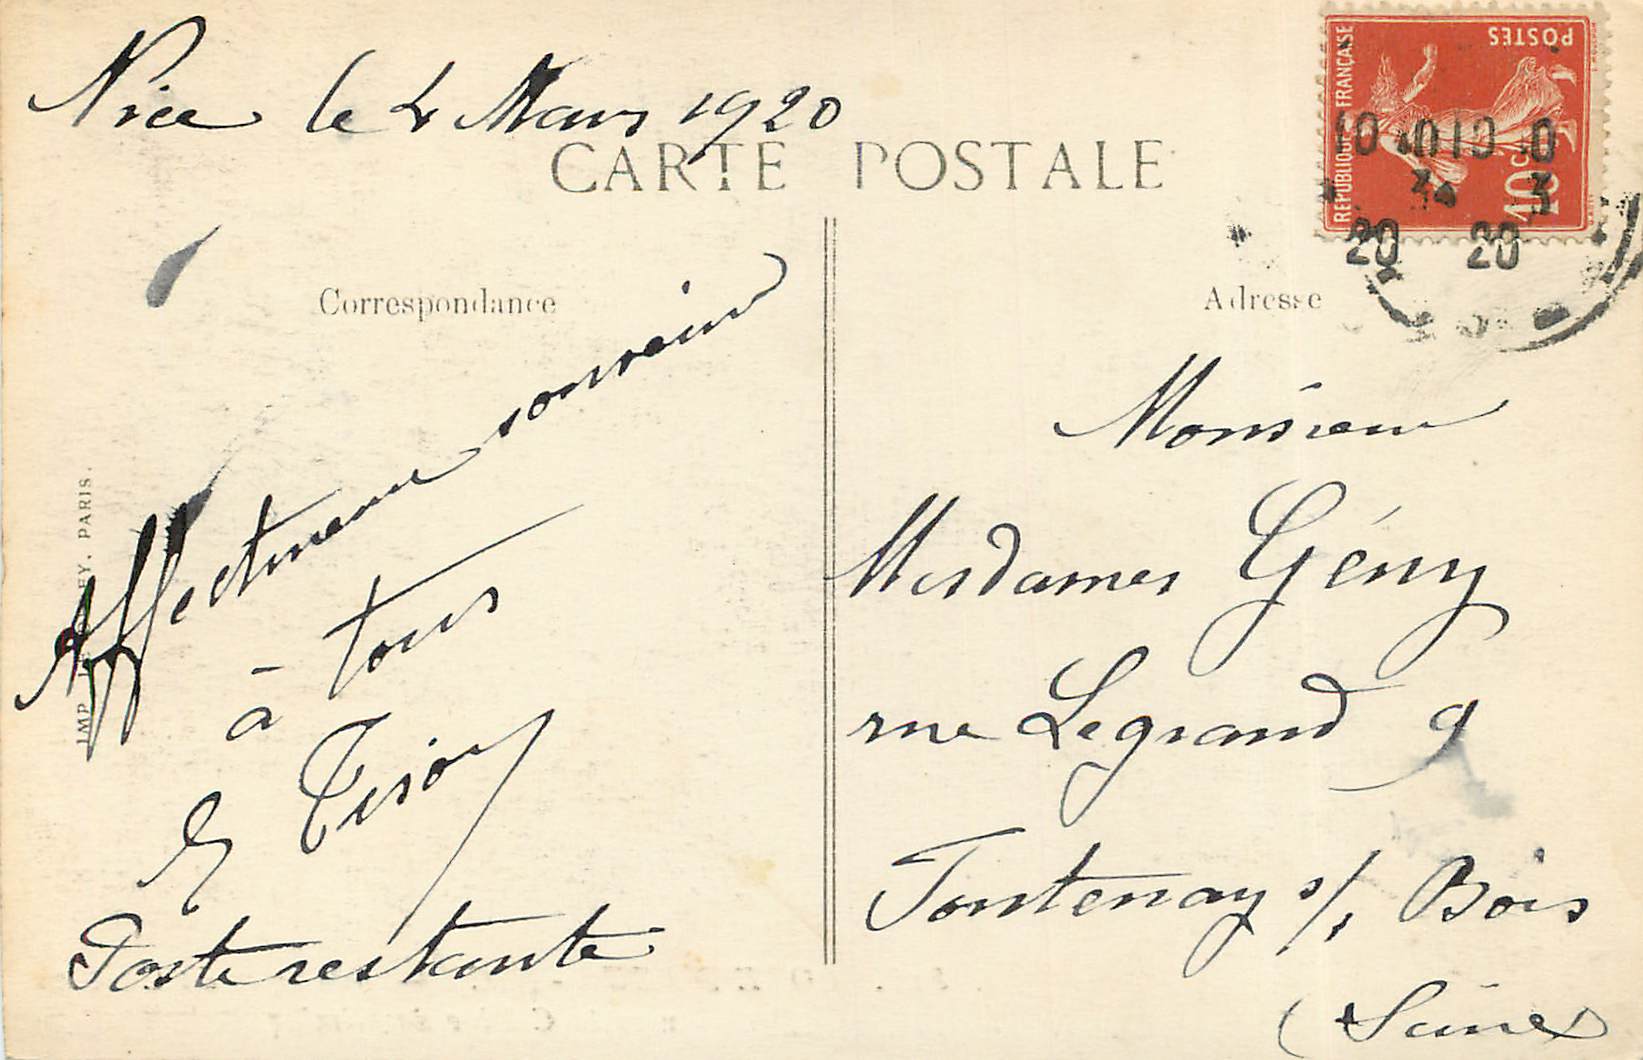 Nice le 4 Mars 1920
CARTE POSTALE
POSTES
REPUBLIQUE FRANÇAISE
10c
20 20
Correspondance
Adresse
Affectueux souvenir
à tous
Poste restante
Monsieur
Mesdames Gény
rue Legrand 9
Fontenay s/s Bois
(Seine)
PARIS.